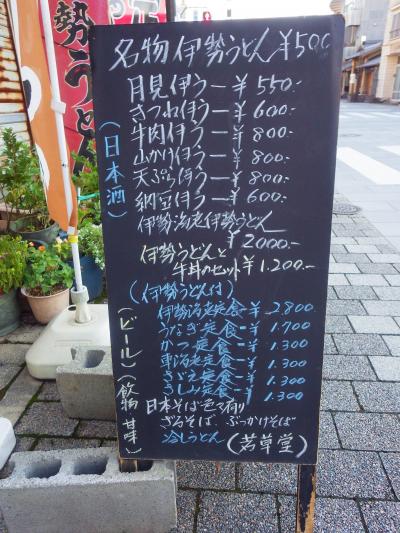 勢うどん
名物伊勢うどん¥500
月見伊うー¥550.-
きつね伊うー¥600.-
牛肉伊うー¥800.-
山かけ伊うー¥800.-
天ぷら伊うー¥800.-
納豆伊うー¥600.-
伊勢海老伊勢うどん
¥2000.-
伊勢うどんと
牛丼のセット¥1.200.-
(日本酒)
(伊勢うどん付)
伊勢海老定食-¥2.800
うなぎ定食-¥1.700
かつ定食-¥1.300
車海老定食-¥1.300
さざえ定食-¥1.300
さしみ定食-¥1.300
(ビール)(飲物 甘味)
日本そば色々有り
ざるそば、ぶっかけそば
冷しうどん(若草堂)